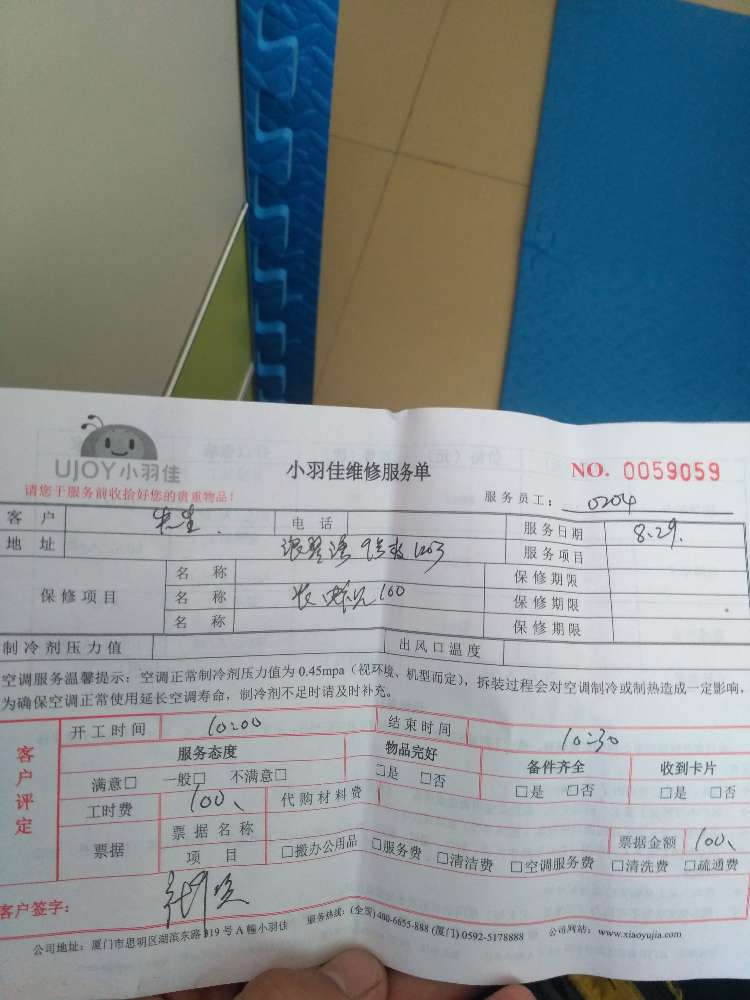 UJOY小羽佳
小羽佳维修服务单
NO. 0059059
请您于服务前收拾好您的贵重物品！
服务员工： 0204
客 户 电 话 服务日期 8.29.
地 址 1203 服务项目
保修项目
名 称 保修期限
名 称 100 保修期限
名 称 保修期限
制冷剂压力值 出风口温度
空调服务温馨提示：空调正常制冷剂压力值为 0.45mpa（视环境、机型而定），拆装过程会对空调制冷或制热造成一定影响，
为确保空调正常使用延长空调寿命，制冷剂不足时请及时补充。
客户评定
开工时间 10:00 结束时间 10:30
服务态度 物品完好 备件齐全 收到卡片
满意□ 一般□ 不满意□ □是 □否 □是 □否 □是 □否
工时费 100、 代购材料费
票据 票据名称 票据金额 100、
项 目 □搬办公用品 □服务费 □清洁费 □空调服务费 □清洗费 □疏通费
客户签字：
公司地址：厦门市思明区湖滨东路 319 号 A 幢小羽佳 服务热线：(全国) 400-6655-888 (厦门) 0592-5178888 公司网站：www.xiaoyujia.com